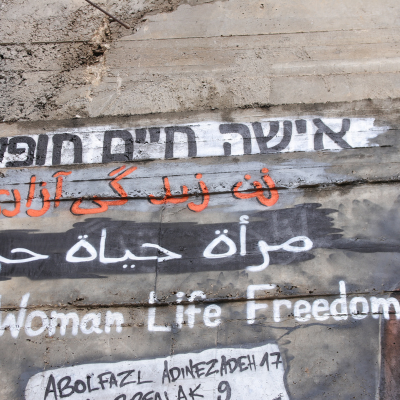 אישה חיים חופ
زن زندگی آزا
مرأة حياة ح
Woman Life Freedom
ABOLFAZL ADINEZADEH 17
9